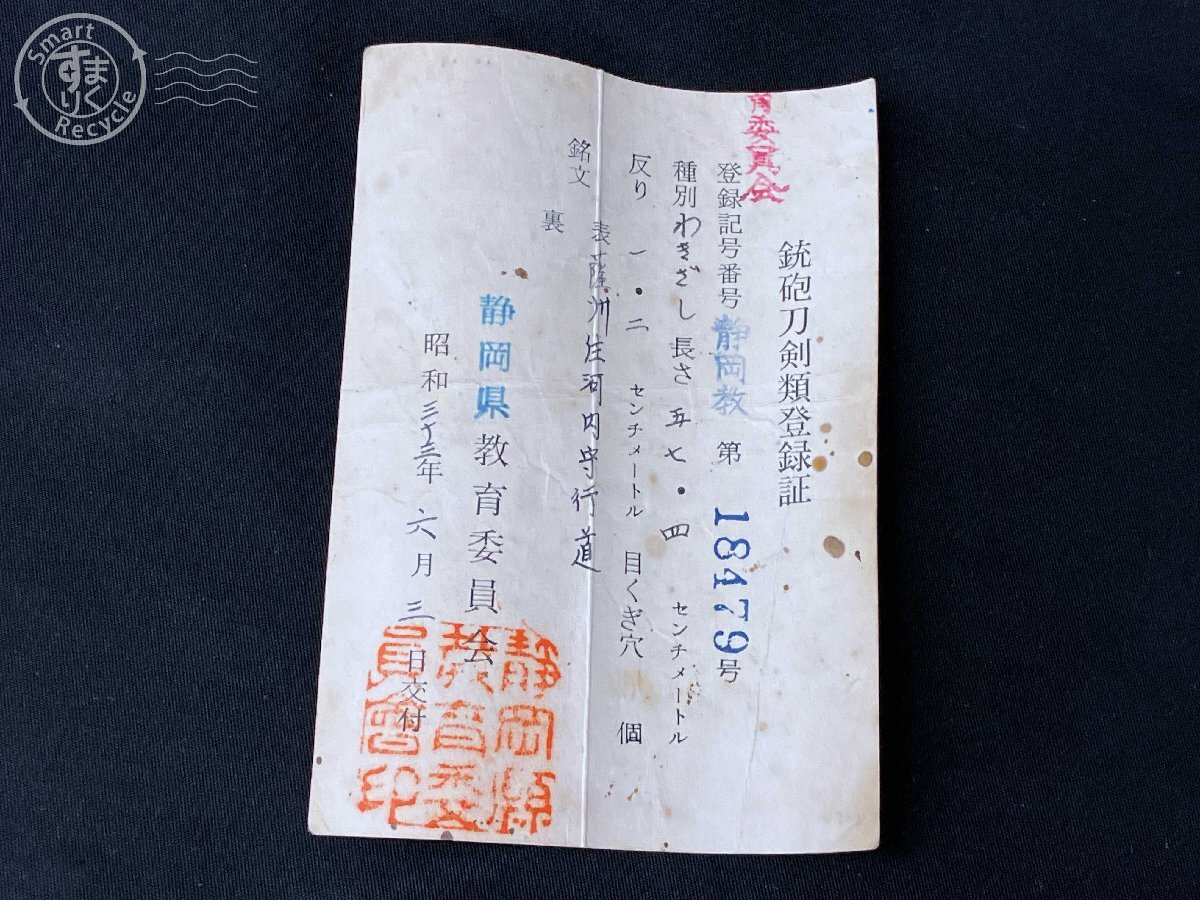 Smart
すまりく
Recycle
育委員会
銃砲刀剣類登録証
登録記号番号 静岡教 第 18479 号
種別 わきざし 長さ 五七・四 センチメートル
反り 一・二 センチメートル 目くぎ穴 個
銘文 表 薩洲住河内守行道
裏
静岡県教育委員会
昭和三十三年六月三日交付
静岡縣
教育委
員會印